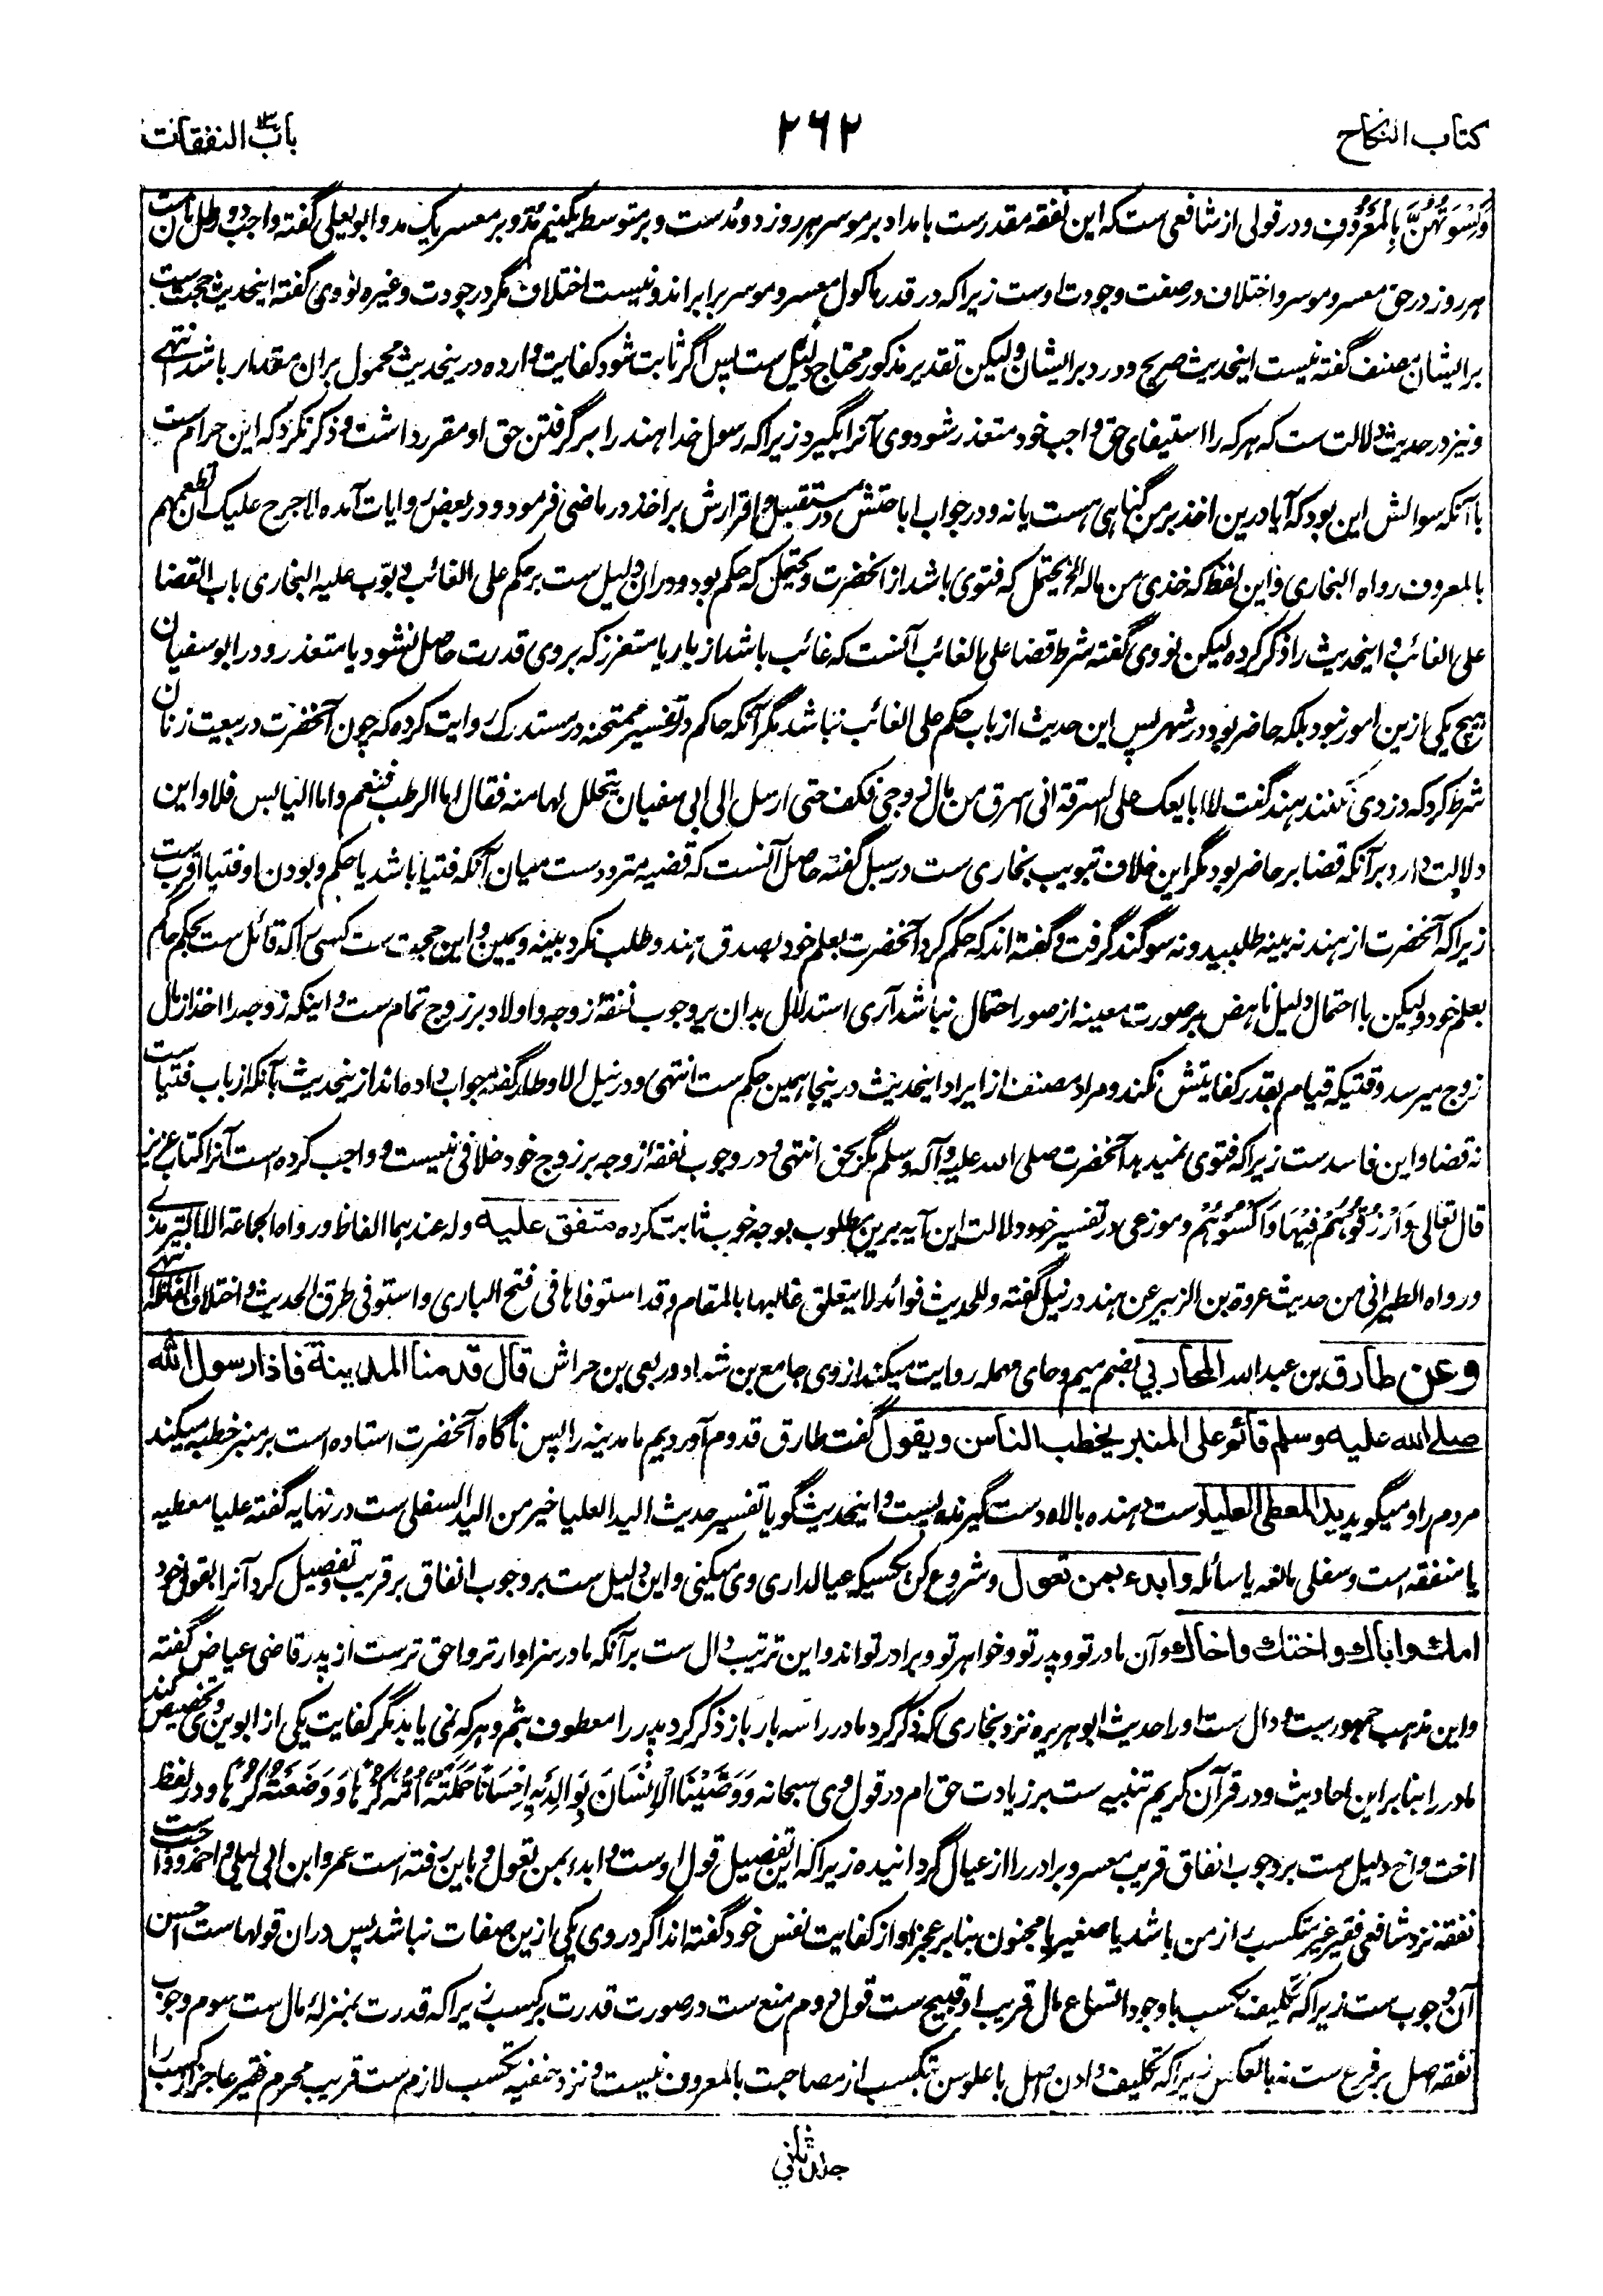 کتاب النکاح
۲۶۲
باب النفقات
وَکِسْوَتُهُنَّ بِالْمَعْرُوْفِ ودر قولی از شافعی ست که این نفقه مقدرست بامداد بر موسر هر روز دو مُدست و بر متوسط یکنیم مُدّ و بر معسر یک مد و ابو یعلی گفته واجب دو رطل نان ست
هر روز در حق معسر و موسر و اختلاف در صفت وجودت اوست زیراکه در قدر ماکول معسر و موسر برابر اند و نیست اختلاف مگر در جودت وغیره نووی گفته اینحدیث حجت ست
بر ایشان مصنف گفته نیست اینحدیث صریح در رد بر ایشان ولیکن تقدیر مذکور محتاج دلیل ست پس اگر ثابت شود کفایت وارده درینحدیث محمول بران مقدار باشد انتهی
ونیز در حدیث دلالت ست که هر که را استیفای حق واجب خود متعذر شود وی آنرا بگیرد زیراکه رسول خدا هند را بر گرفتن حق او مقرر داشت و ذکر نکرد که این حرام ست
با آنکه سوالش این بود که آیا درین اخذ بر من گناهی هست یا نه و در جواب اباحتش در مستقبل و اقرارش بر اخذ در ماضی فرمود و در بعض روایات آمده لا حرج علیک ان تطعمیهم
بالمعروف رواه البخاری و این لفظ که خذی من ماله الخ یحتمل که فتوی باشد از آنحضرت و یحتمل که حکم بود و دران دلیل ست بر حکم علی الغائب و بوّب علیه البخاری باب القضا
علی الغائب و اینحدیث را ذکر کرده لیکن نووی گفته شرط قضا علی الغائب آنست که غائب باشد از بلد یا متعزز که بر وی قدرت حاصل نشود یا متعذر و در ابوسفیان
هیچ یکی ازین امور نبود بلکه حاضر بود در شهر پس این حدیث از باب حکم علی الغائب نباشد مگر آنکه حاکم در تفسیر ممتحنه در مستدرک روایت کرده که چون آنحضرت در بیعت زنان
شرط کرد که دزدی نکنند هند گفت لا ابایعک علی السرقة انی اسرق من مال زوجی فکف حتی ارسل الی ابی سفیان یتحلل لها منه فقال اما الرطب فنعم واما الیابس فلا و این
دلالت دارد بر آنکه قضا بر حاضر بود مگر این خلاف تبویب بخاری ست در سبل گفته حاصل آنست که قضیه مترددست میان آنکه فتیا باشد یا حکم و بودن او فتیا اقرب ست
زیراکه آنحضرت از هند نه بینه طلبید و نه سوگند گرفت و گفته اند که حکم کرد آنحضرت بعلم خود بصدق هند و طلب نکرد بینه و یمین و این حجت ست کسی را که قائل ست بحکم حاکم
بعلم خود ولیکن با احتمال دلیل ناهض بر صورت معینه از صور احتمال نباشد آری استدلال بدان بر وجوب نفقۂ زوجه و اولاد بر زوج تمام ست و اینکه زوجه را اخذ از مال
زوج میرسد وقتیکه قیام بقدر کفایتش نکند و مراد مصنف از ایراد اینحدیث درینجا همین حکم ست انتهی و در نیل الاوطار گفته جواب داده اند ازینحدیث بآنکه از باب فتیاست
نه قضا و این فاسدست زیراکه فتوی نمیدهد آنحضرت صلی الله علیه وآله وسلم مگر بحق انتهی و در وجوب نفقۂ زوجه بر زوج خود خلافی نیست و واجب کرده است آنرا کتاب عزیز
قال تعالی وَارْزُقُوْهُمْ فِیْهَا وَاکْسُوْهُمْ و موزعی در تفسیر خود دلالت این آیه برین مطلوب بوجه خوب ثابت کرده متفق علیه وله عندهما الفاظ ورواه الجماعة الا الترمذی
ورواه الطبرانی من حدیث عروة بن الزبیر عن هند در نیل گفته وللحدیث فوائد لا یتعلق غالبها بالمقام وقد استوفاها فی فتح الباری واستوفی طرق الحدیث واختلاف الفاظه انتهی
وعن طارق بن عبد الله المحاربي بضم میم و حای مهمله روایت میکند از وی جامع بن شداد و ربعی بن حراش قال قدمنا المدینة فاذا رسول الله
صلی الله علیه وسلم قائم علی المنبر یخطب الناس ویقول گفت طارق قدوم آوردیم ما مدینه را پس ناگاه آنحضرت استاده است بر منبر خطبه میکند
مردم را و میگوید ید المعطی العلیا دست دهنده بالا و دست گیرنده پست و اینحدیث گویا تفسیر حدیث الید العلیا خیر من الید السفلی ست در نهایه گفته علیا معطیه
یا منفقه است و سفلی مانعه یا سائله وابدء بمن تعول و شروع کن بکسیکه عیالداری وی میکنی و این دلیل ست بر وجوب انفاق بر قریب و تفصیل کرد آنرا بقول خود
امك واباك واختك واخاك و آن مادر تو و پدر تو و خواهر تو و برادر تواند و این ترتیب دال ست بر آنکه مادر سزاوارتر و احق ترست از پدر قاضی عیاض گفته
و این مذهب جمهورست و دال ست او را حدیث ابو هریره نزد بخاری که ذکر کرد مادر را سه بار باز ذکر کرد پدر را معطوف بثم و هر که نمی یابد مگر کفایت یکی از ابوین وی تخصیص کند
مادر را بنا بر این احادیث و در قرآن کریم تنبیه ست بر زیادت حق ام در قول وی سبحانه وَوَصَّیْنَا الْاِنْسَانَ بِوَالِدَیْهِ اِحْسَانًا حَمَلَتْهُ اُمُّهُ کُرْهًا وَّوَضَعَتْهُ کُرْهًا و در لفظ
اخت و اخ دلیل ست بر وجوب انفاق قریب معسر و برادر را از عیال گردانیده زیراکه این تفصیل قول اوست وابدء بمن تعول و باین رفته است عمر و ابن ابی لیلی و احمد و واجب ست
نفقه نزد شافعی فقیر غیر متکسب را زمن باشد یا صغیر یا مجنون بنا بر عجز او از کفایت نفس خود گفته اند اگر در وی یکی ازین صفات نباشد پس دران قولهاست احسن
آن وجوب ست زیراکه تکلیف تکسب با وجود اتساع مال قریب او قبیح ست قول دوم منع ست در صورت قدرت بر کسب زیراکه قدرت بمنزلۂ مال ست سوم وجوب
نفقه اصل بر فرع ست نه بالعکس زیراکه تکلیف دادن اصل با علو سن بتکسب از مصاحبت بالمعروف نیست و نزد حنفیه تکسب لازم ست قریب محرم فقیر عاجز از کسب را
جلد ثانی